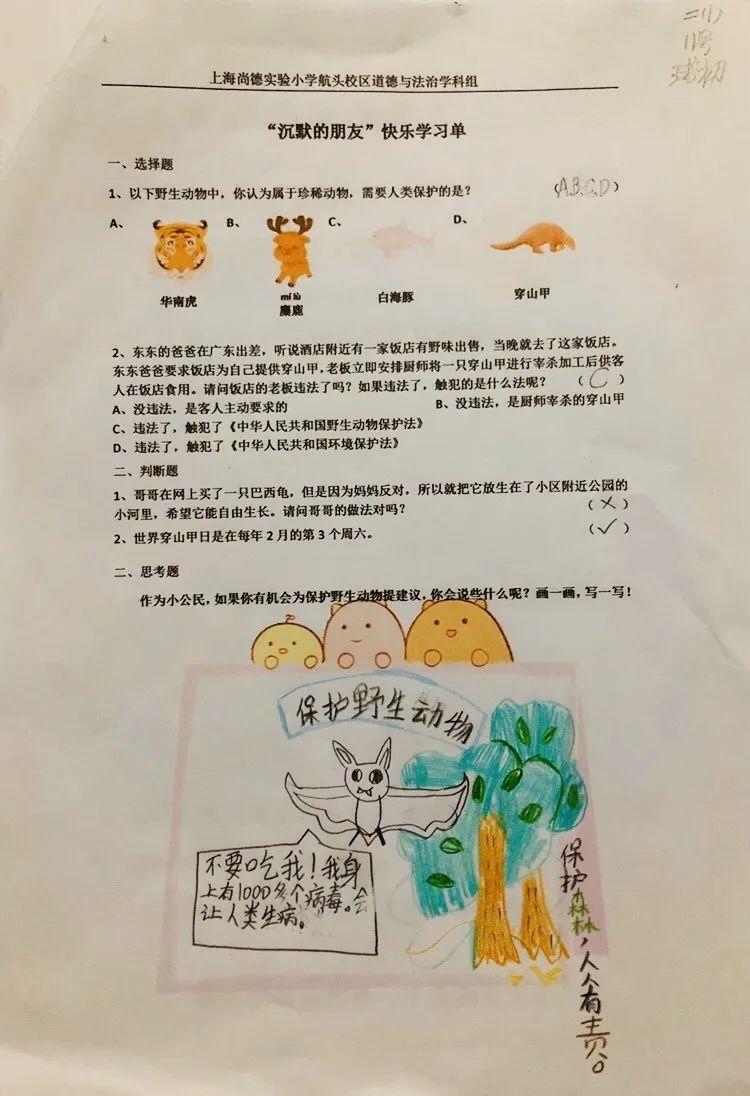 二(1)
11号
上海尚德实验小学航头校区道德与法治学科组
“沉默的朋友”快乐学习单
一、选择题
1、以下野生动物中，你认为属于珍稀动物，需要人类保护的是？ （A.B.C.D）
A、 B、 C、 D、
华南虎 mí lù 麋鹿 白海豚 穿山甲
2、东东的爸爸在广东出差，听说酒店附近有一家饭店有野味出售，当晚就去了这家饭店。
东东爸爸要求饭店为自己提供穿山甲，老板立即安排厨师将一只穿山甲进行宰杀加工后供客
人在饭店食用。请问饭店的老板违法了吗？如果违法了，触犯的是什么法呢？ （C）
A、没违法，是客人主动要求的 B、没违法，是厨师宰杀的穿山甲
C、违法了，触犯了《中华人民共和国野生动物保护法》
D、违法了，触犯了《中华人民共和国环境保护法》
二、判断题
1、哥哥在网上买了一只巴西龟，但是因为妈妈反对，所以就把它放生在了小区附近公园的
小河里，希望它能自由生长。请问哥哥的做法对吗？ （×）
2、世界穿山甲日是在每年2月的第3个周六。 （✓）
二、思考题
作为小公民，如果你有机会为保护野生动物提建议，你会说些什么呢？画一画，写一写！
保护野生动物
不要吃我！我身
上有1000多个病毒。会
让人类生病。
保护森林，人人有责。